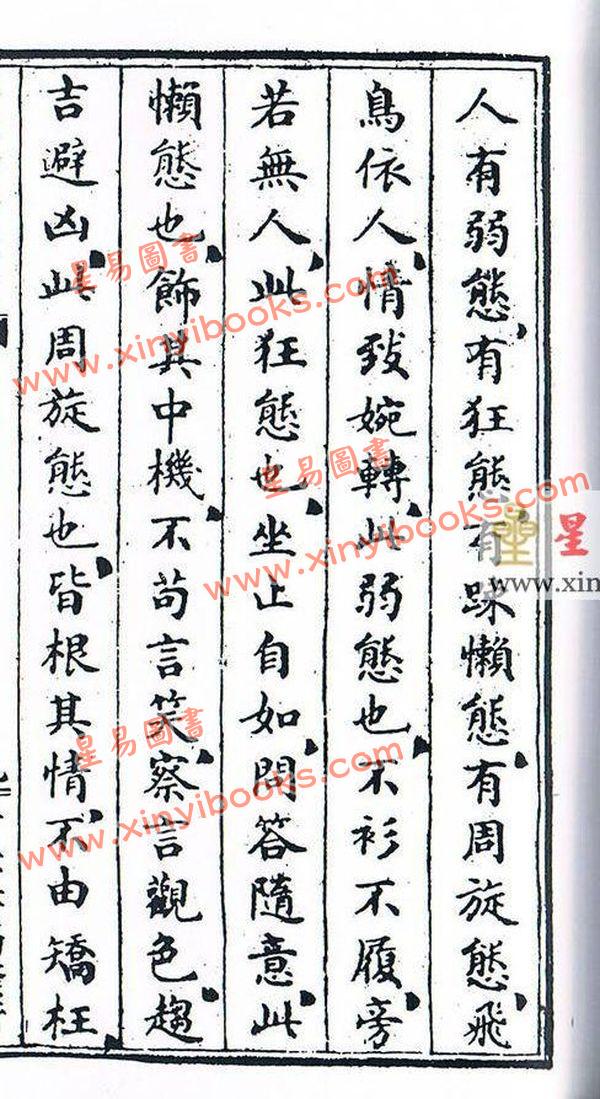 人有弱態、有狂態、有踈懶態、有周旋態、飛
鳥依人、情致婉轉、此弱態也、不衫不履、旁
若無人、此狂態也、坐止自如、問答隨意、此
懶態也、飾其中機、不苟言笑、察言觀色、趨
吉避凶、此周旋態也、皆根其情、不由矯枉
星易圖書
www.xinyibooks.com
星易圖書
www.xinyibooks.com
星易圖書
www.xinyibooks.com
星
www.xin